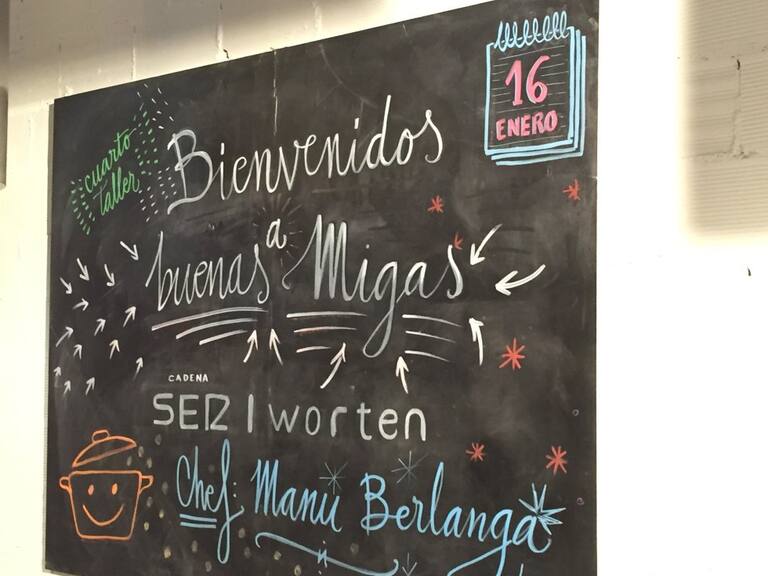 16
ENERO
cuarto
taller
Bienvenidos
a
buenas Migas
CADENA
SER | worten
Chef: Manu Berlanga